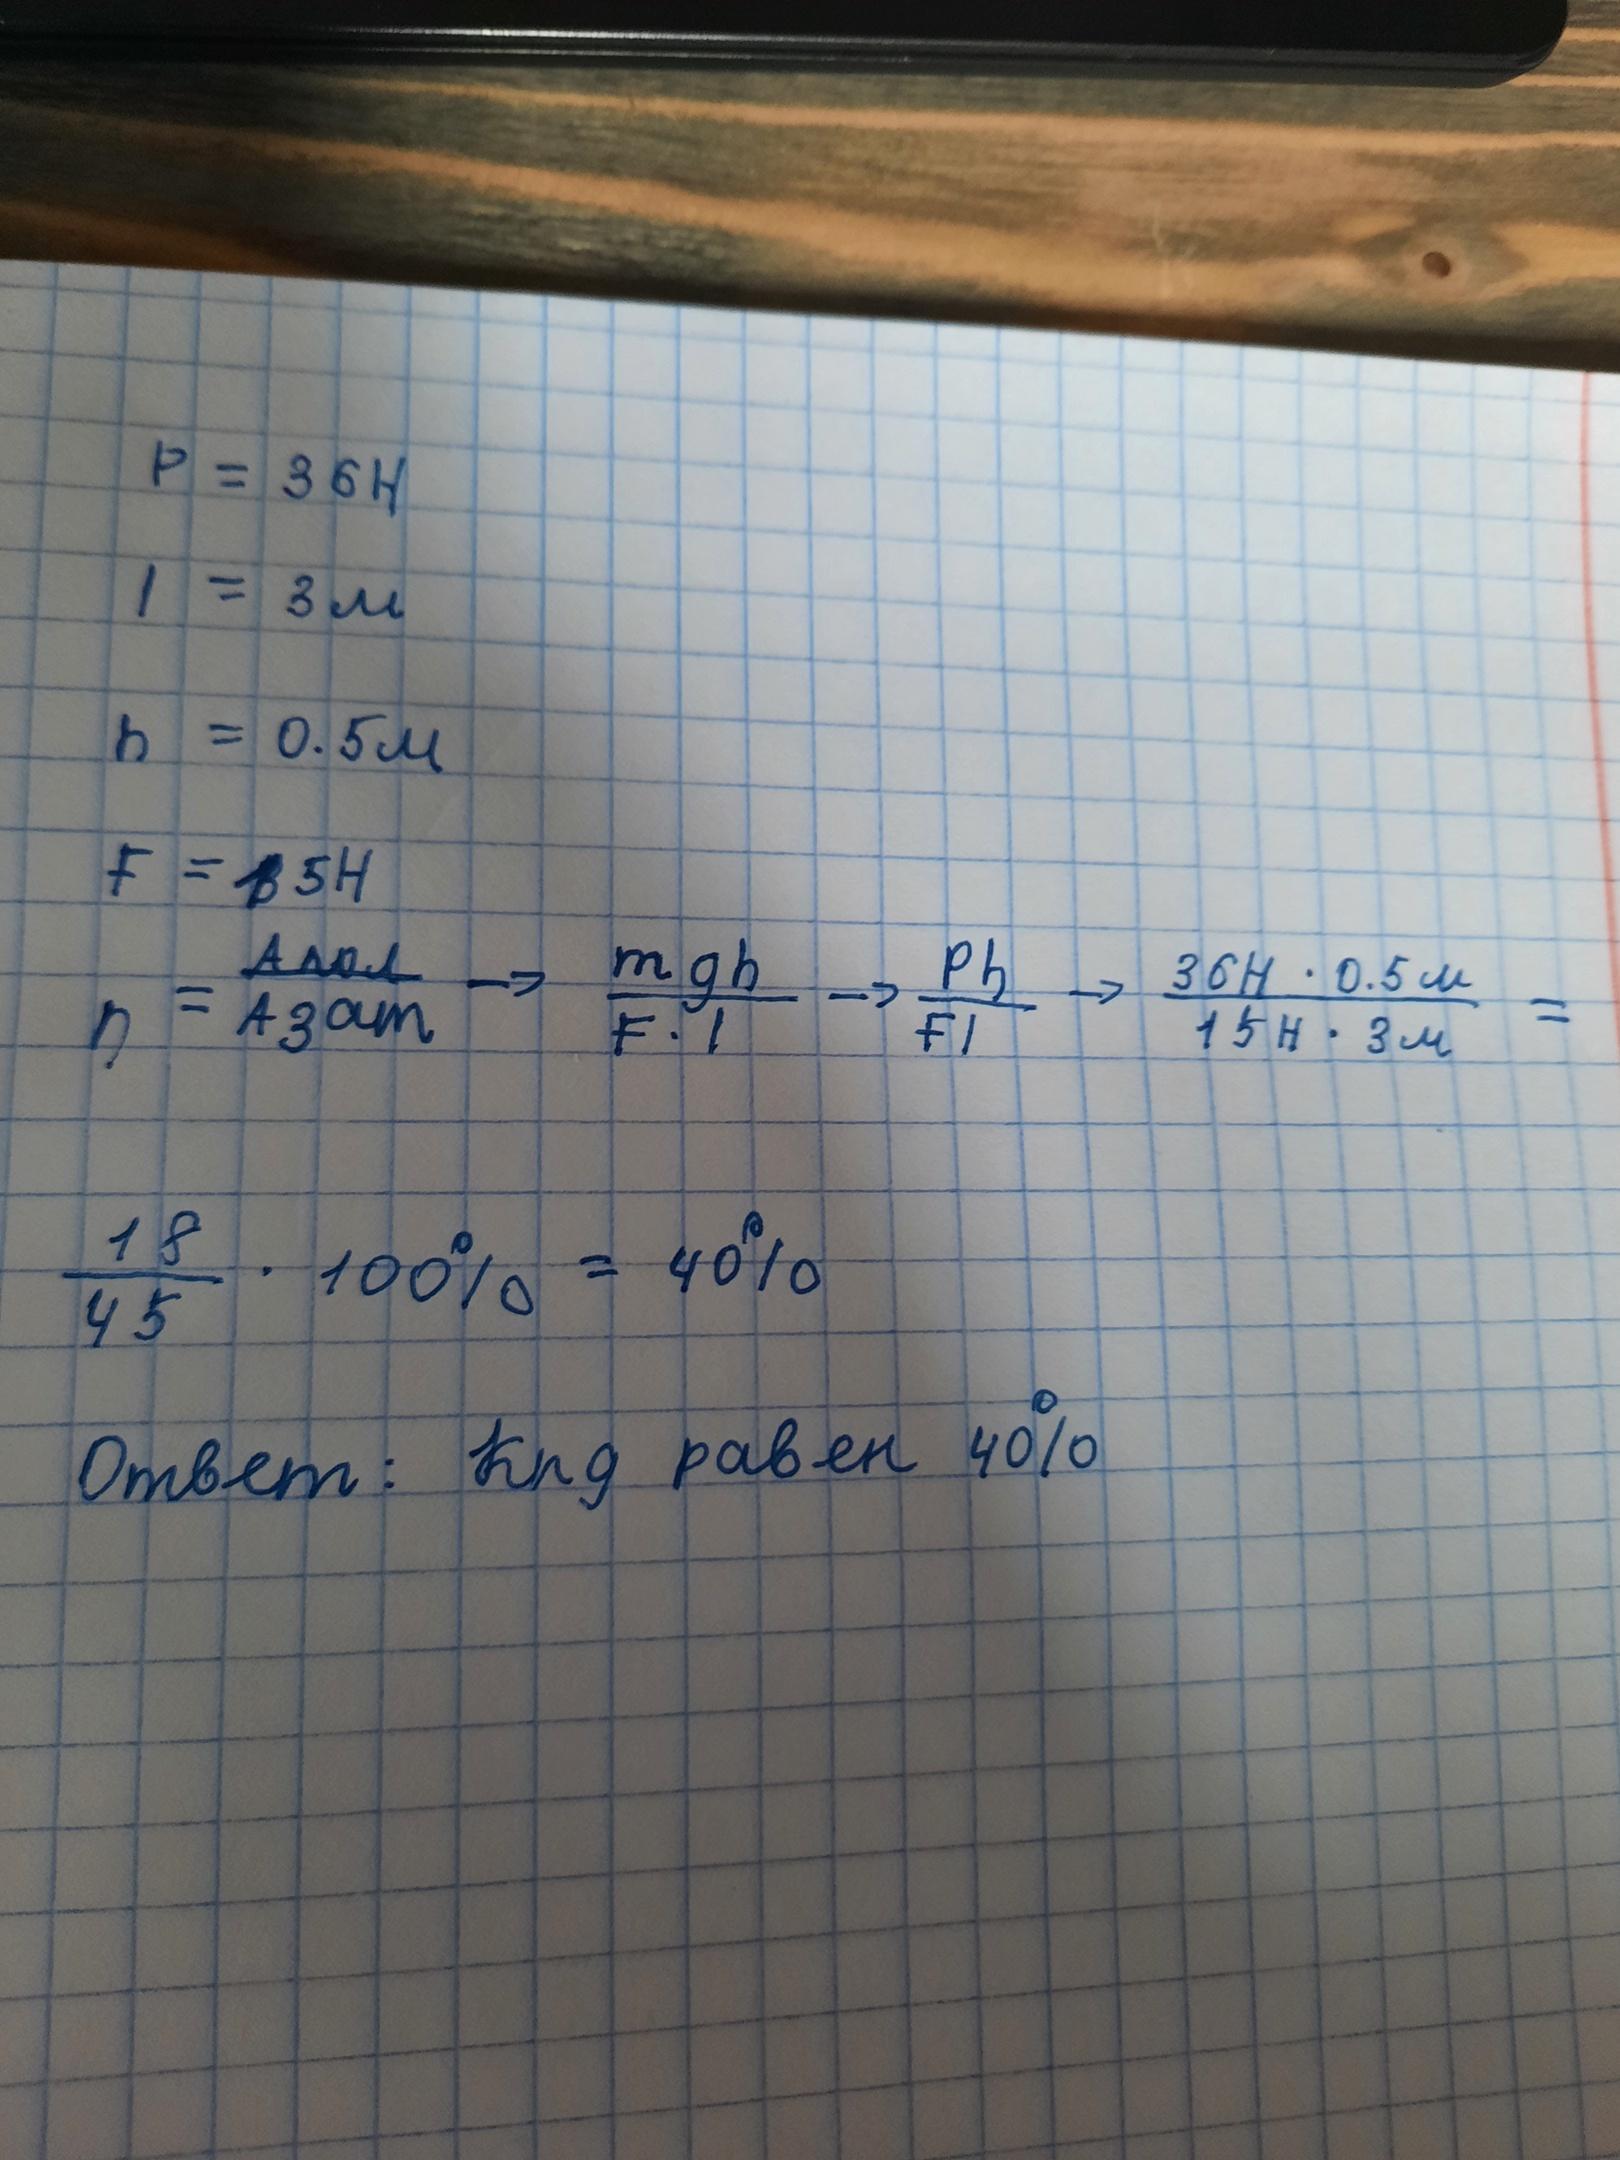 P = 36Н
l = 3м
h = 0.5м
F = 15Н
η = Aпол/Aзат → mgh/F·l → Ph/Fl → 36Н · 0.5м/15Н · 3м =
18/45 · 100% = 40%
Ответ: Кпд равен 40%